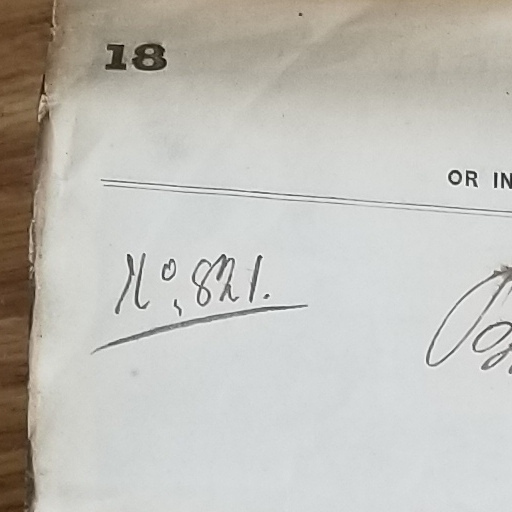 18
OR IN
No. 821.